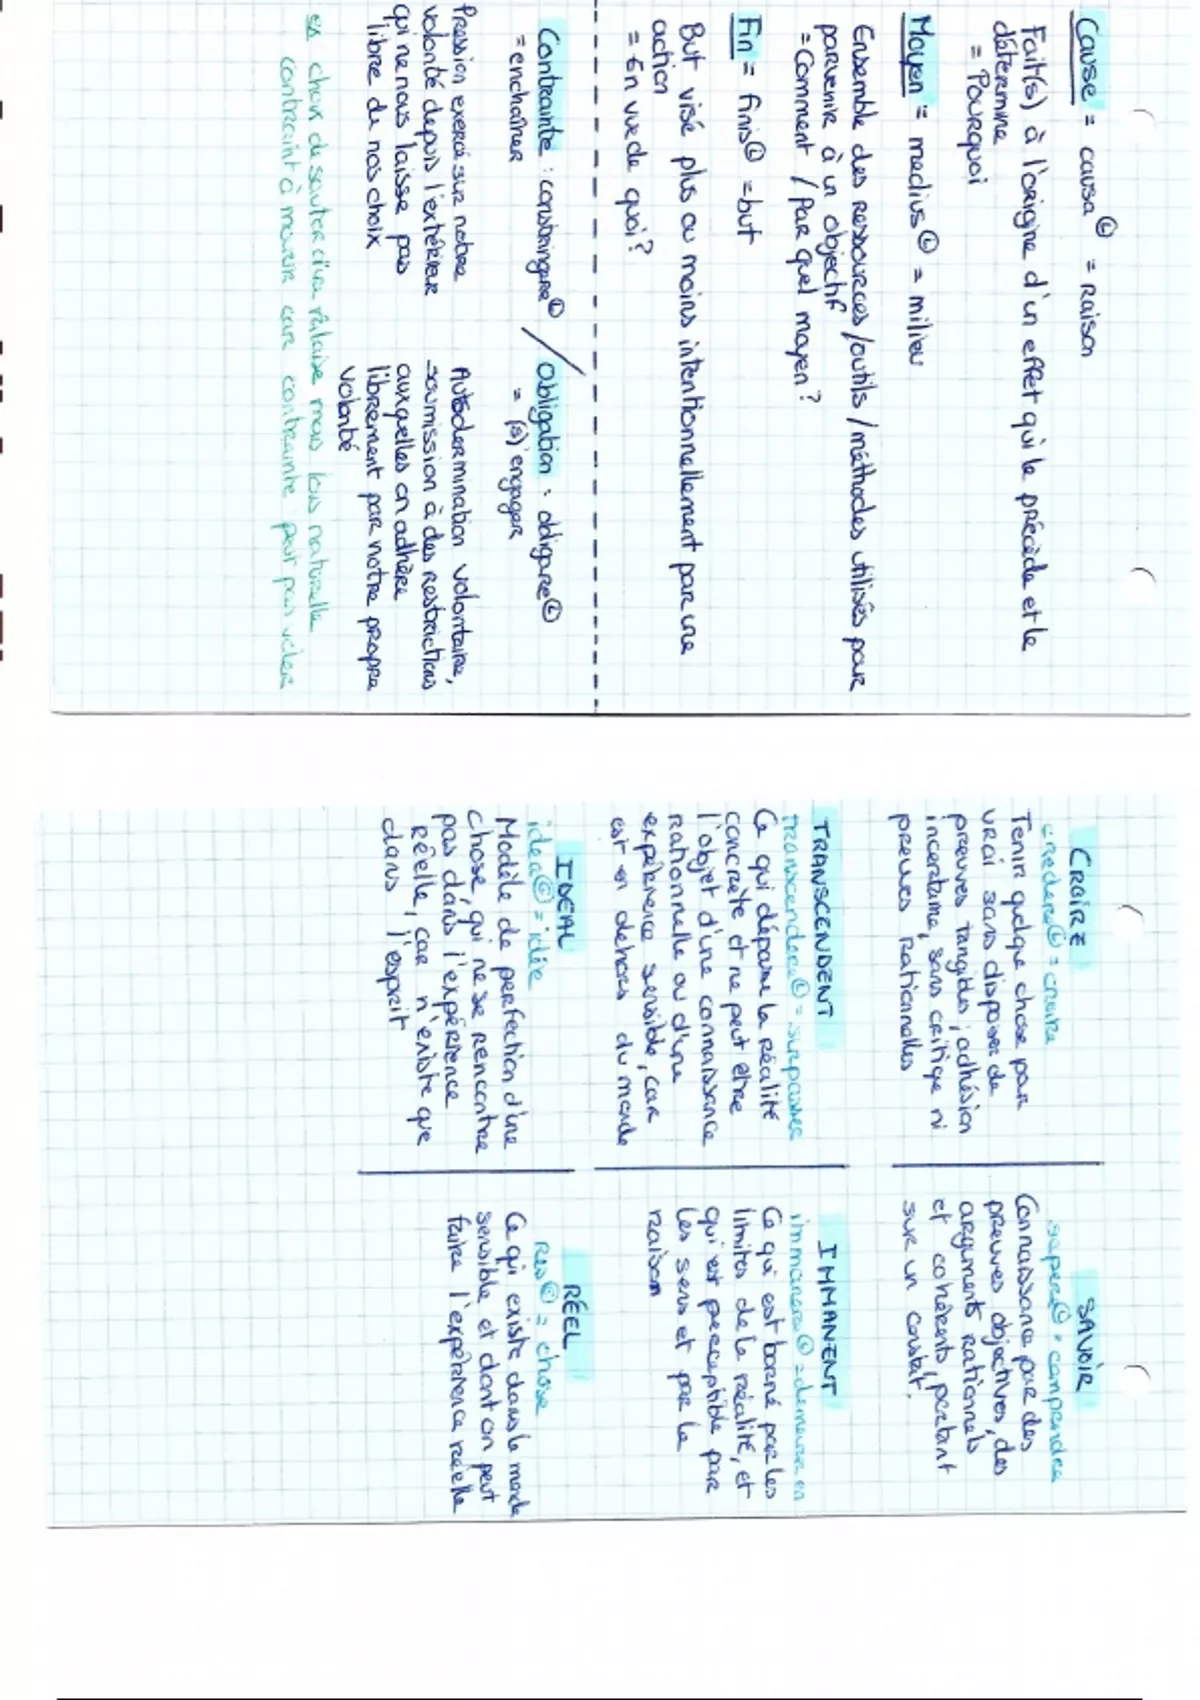 Cause = causa Ⓛ = raison
Fait(s) à l'origine d'un effet qui le précède et le
détermine
= Pourquoi
Moyen = medius Ⓛ = milieu
Ensemble des ressources/outils/méthodes utilisés pour
parvenir à un objectif
= Comment / Par quel moyen ?
Fin = finis Ⓛ = but
But visé plus ou moins intentionnellement par une
action
= En vue de quoi ?
Contrainte : constringere Ⓛ / Obligation : obligare Ⓛ
= enchaîner
= (s)'engager
Pression exercé sur notre
volonté depuis l'extérieur
qui ne nous laisse pas
libre de nos choix
Autodermination volontaire,
soumission à des restrictions
auxquelles on adhère
librement par notre propre
volonté
ex choix de sauter d'une falaise mais lois naturelle
contraint à mourir car contrainte peut pas voler
CROIRE
credere Ⓛ = croire
Tenir quelque chose par
vrai sans disposer de
preuves tangibles ; adhésion
incertaine, sans critique ni
preuves rationnelles
SAVOIR
sapere Ⓛ = comprendre
Connaissance par des
preuves objectives, des
arguments rationnels
et cohérents, portant
sur un constat.
TRANSCENDENT
transcendere Ⓛ = surpasser
Ce qui dépasse la réalité
concrète et ne peut être
l'objet d'une connaissance
rationnelle ou d'une
expérience sensible, car
est en dehors du monde
IMMANENT
immanere Ⓛ = demeurer en
Ce qui est borné par les
limites de la réalité, et
qui est perceptible par
les sens et par la
raison
IDEAL
idea Ⓖ = idée
Modèle de perfection d'une
chose, qui ne se rencontre
pas dans l'expérience
réelle, car n'existe que
dans l'esprit
RÉEL
Res Ⓛ = chose
Ce qui existe dans le monde
sensible et dont on peut
faire l'expérience réelle